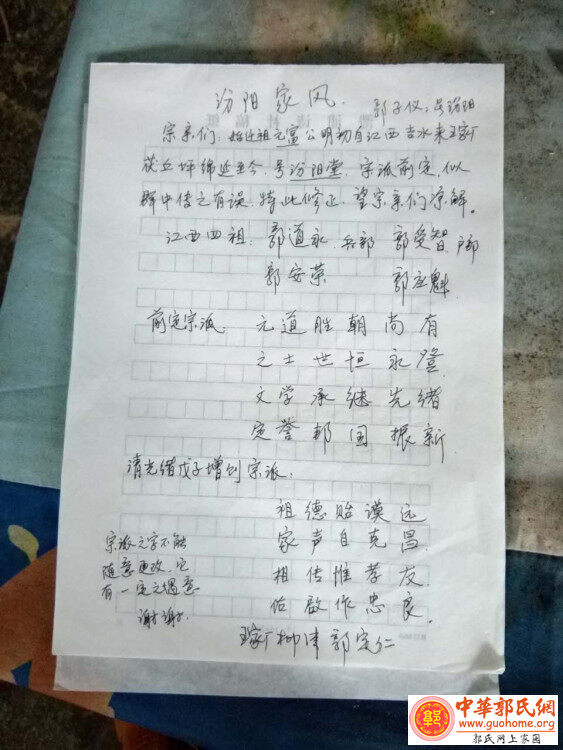 汾阳家风
郭子仪，号汾阳
宗亲们：始迁祖元富公明初自江西吉水来
茯丘坪绵延至今，号汾阳堂，宗派前定，似
群中传之有误，特此修正，望宗亲们凉解。
江西四祖：郭道永 兵部 郭受智
郭安荣 郭应魁
前定宗派： 元道胜朝尚有
之士世恒永隆
文学承继先绪
定誉邦国振新
清光绪戊子增刊宗派：
祖德贻谟远
家声自克昌
相传惟孝友
佑啟作忠良
宗派之字不能
随意更改，它
有一定之遇意
谢谢
柳清 郭宗仁
中華郭氏網
www.guohome.org
郭氏网上家园